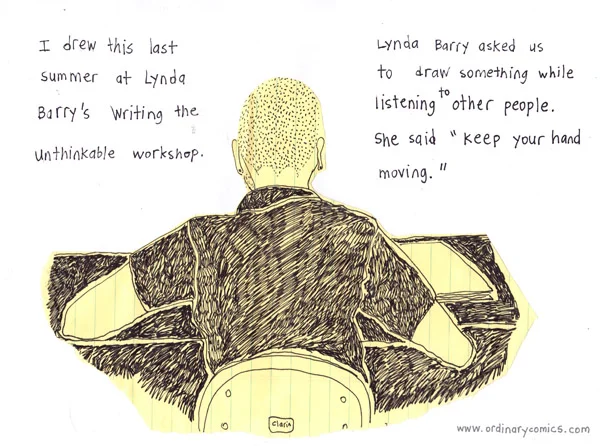 I drew this last
summer at Lynda
Barry's Writing the
Unthinkable workshop.
Lynda Barry asked us
to draw something while
listening to other people.
She said "Keep your hand
moving."
claris
www.ordinarycomics.com